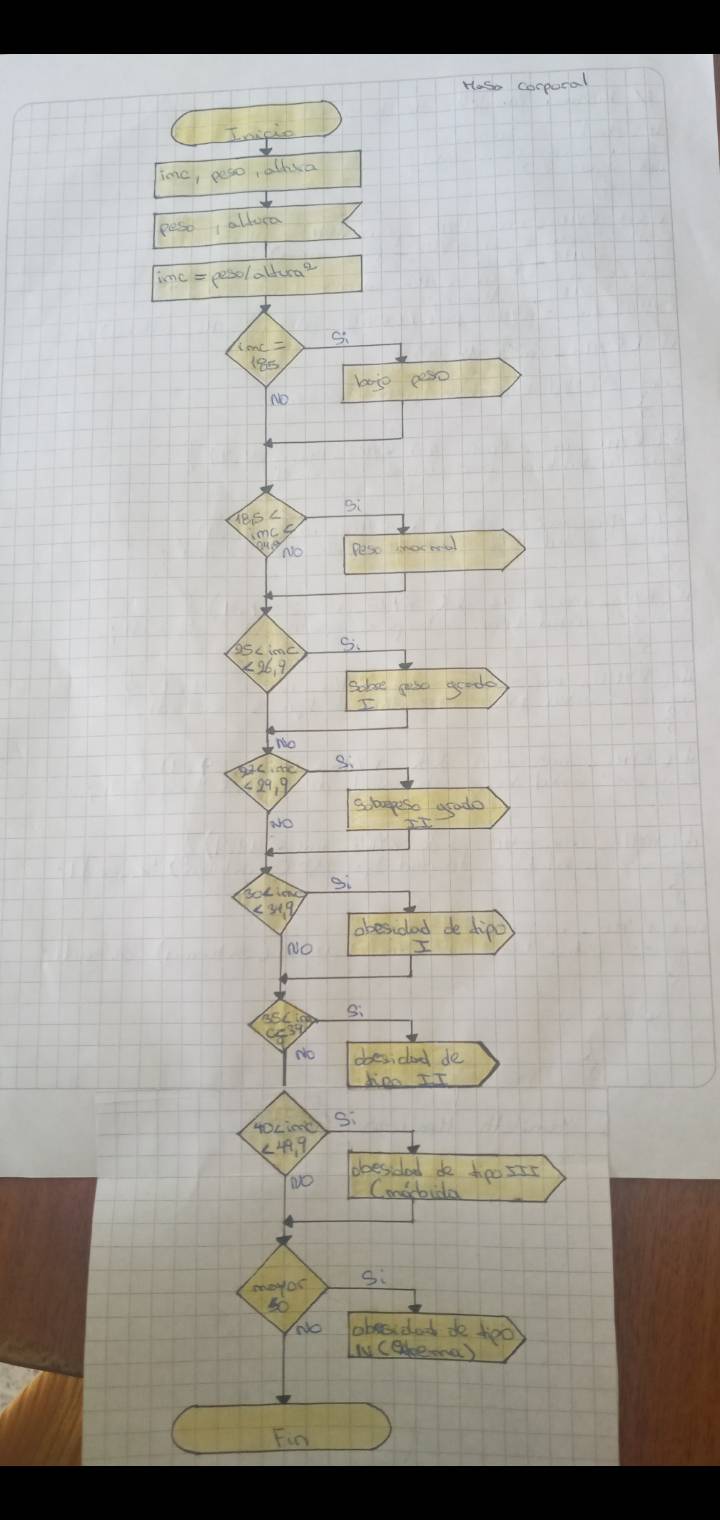 Masa corporal
Inicio
imc, peso, altura
peso, altura
imc = peso/altura²
imc =
185
Si
bajo peso
NO
18,5 <
imc <
24,9
Si
Peso normal
NO
25 < imc
< 26,9
Si
Sobre peso grado
I
NO
27 < imc
< 29,9
Si
Sobrepeso grado
II
NO
30 < imc
< 34,9
Si
obesidad de tipo
I
NO
35 < imc
Si
obesidad de
tipo II
NO
40 < imc
< 49,9
Si
obesidad de tipo III
(mórbida
NO
mayor
50
Si
obesidad de tipo
NO
Fin